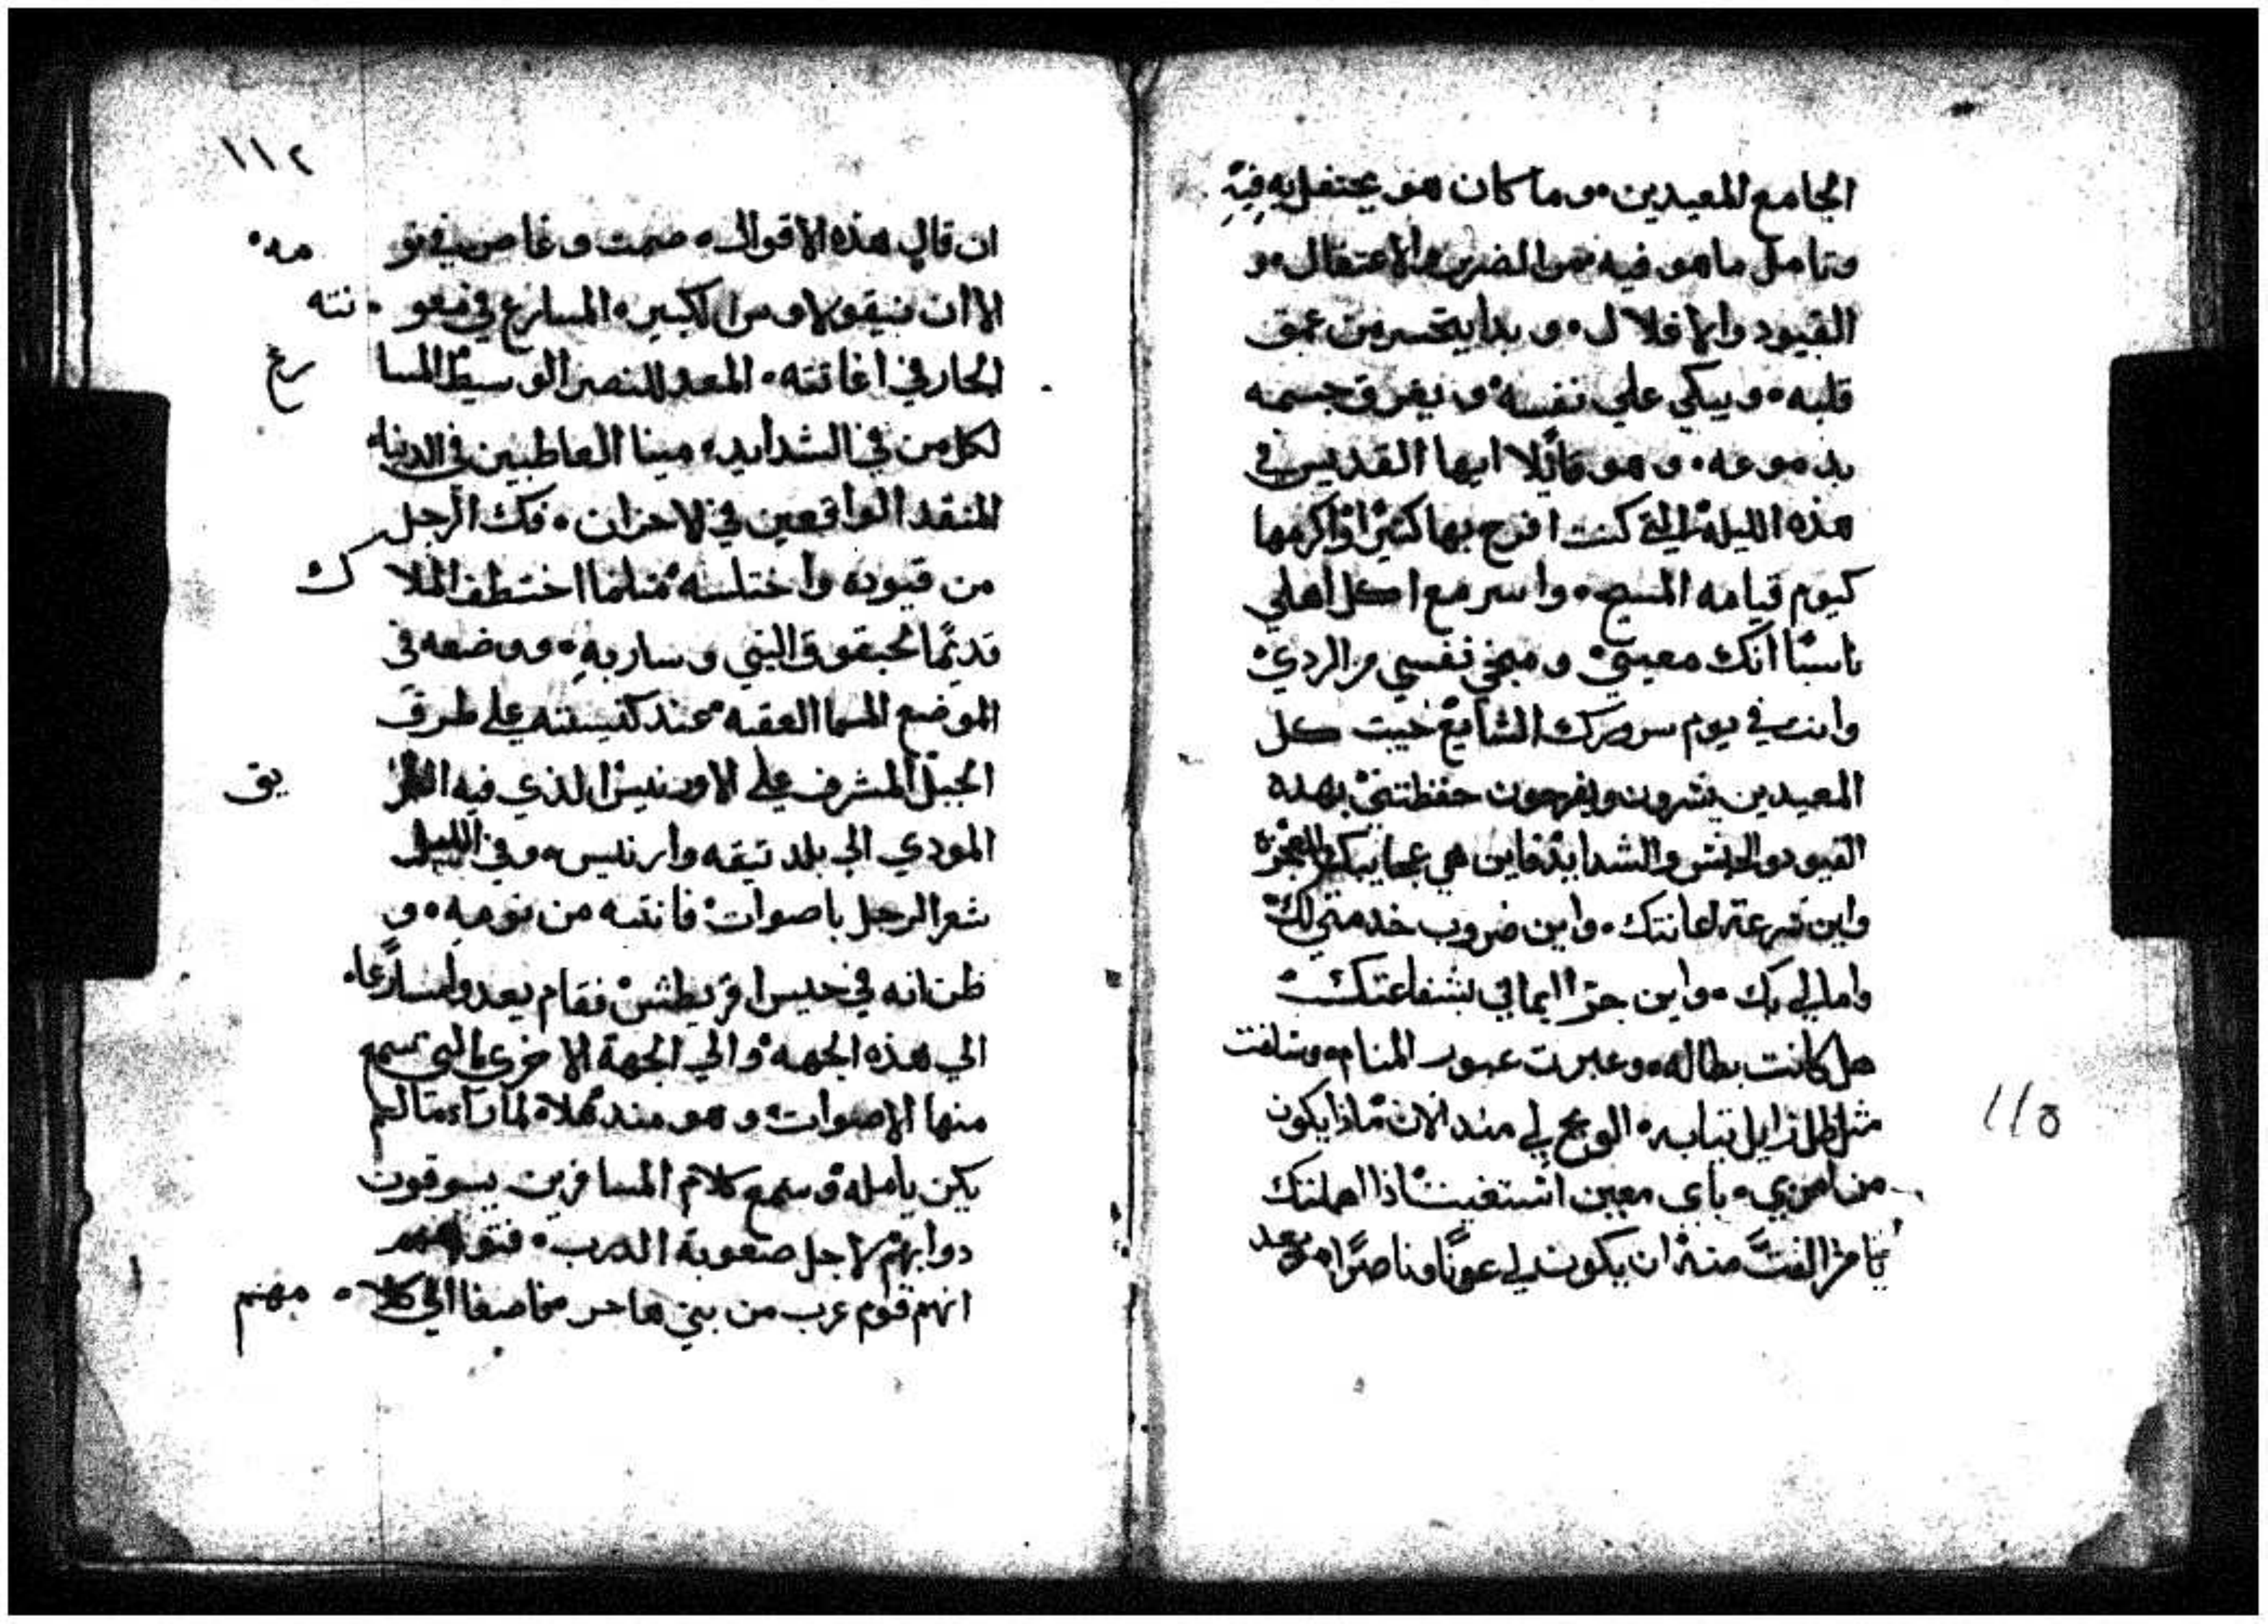 الجامع للمعيدين ٠ وما كان هو يحتفل به فيه
وتامل ما هو فيه من الضر والاعتقال ٠ و
القيود والاغلال ٠ وبدا يتحسر من عمق
قلبه ٠ ويبكي علي نفسه ويغرق جسمه
بدموعه ٠ وهو قائلا ايها القديس في
هذه الليله التي كنت افرح بها كثيرا واكرمها
كيوم قيامه المسيح ٠ واسر مع كل اهلي
انك معيني ومنجي نفسي من الردي
وانت في يوم سرورك الشايع حيت كل
المعيدين يسرون ويفرحون حفظتني بهده
القيود والحبس والشدايد فاين هي عجايبك
واين سرعة اعانتك ٠ واين ضروب خدمتي لك
واملي بك ٠ واين حر ايماني بشفاعتك
هل كانت بطاله ٠ وعبرت عبور المنام ٠
مثل ظل زايل ٠ الويح لي مند الان ماذا يكون
من امري ٠ باي معين استغيث اذا اهملتك
يا من الفت منه ان يكون لي عونا وناصرا ٠ وبعد
١١٥
١١٢
ان قال هذه الاقوال ٠ صمت وغاص في نو مه ٠
الا ان نيقولاوس الكبير ٠ المسارع في معو ٠ نته
الحار في اغاتته ٠ المعد للنصر الوسيط المسا رع
لكل من في الشدايد ٠ مينا العاطبين في الدنيا ٠
المنقد الواقعين في الاحزان ٠ فك الرجل
من قيوده واختلسه مثلما اختطف الملا ك
قديما لحبقوق النبي وسار به ٠ ووضعه في
الموضع المسما العقبه عند كنيسته علي طرف
الجبل المشرف علي الذي فيه الطر يق
المودي الي بلد نيقه ٠ وفي الليل
شعر الرجل باصوات فانتبه من نومه ٠ و
ظن انه في حبس اقريطش فقام يعدوا مسارعا ٠
الي هذه الجهه والي الجهة الاخري التي تسمع
منها الاصوات وهو مندهلا لما راء ما لم
يكن يامله وسمع كلام المسافرين يسوقون
دوابهم لاجل صعوبة الدرب ٠ فتوهم
انهم قوم عرب من بني هاجر فاصغا الي كلا ٠ مهم